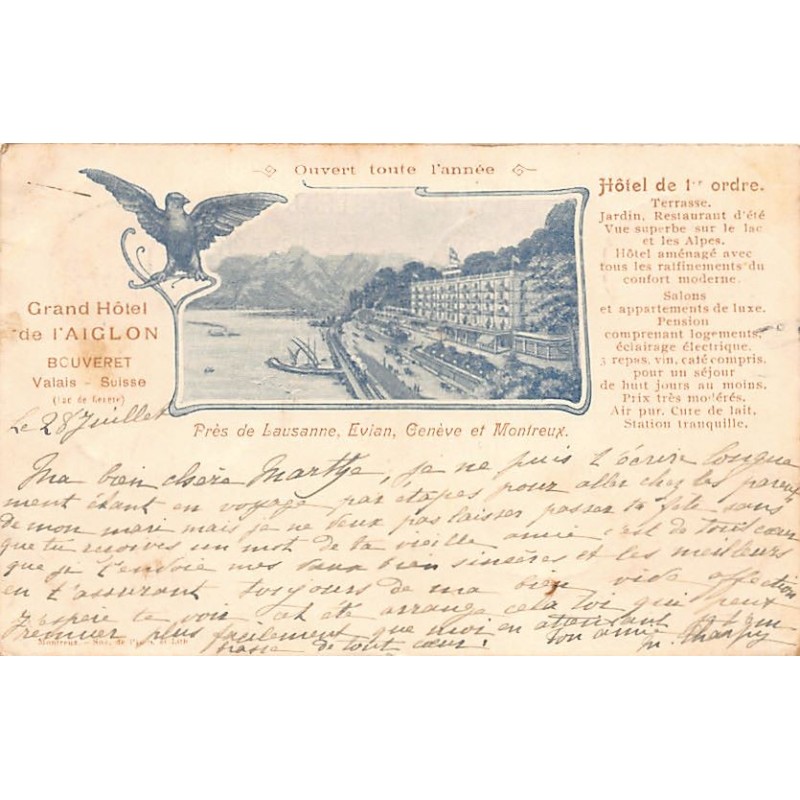 Ouvert toute l'année
Hôtel de 1er ordre.
Terrasse.
Jardin, Restaurant d'été
Vue superbe sur le lac
et les Alpes.
Hôtel aménagé avec
tous les raffinements du
confort moderne.
Salons
et appartements de luxe.
Pension
comprenant logements,
éclairage électrique.
3 repas, vin, café compris,
pour un séjour
de huit jours au moins.
Prix très modérés.
Air pur. Cure de lait.
Station tranquille.
Grand Hôtel
de l'AIGLON
BOUVERET
Valais - Suisse
(Lac de Genève)
Près de Lausanne, Evian, Genève et Montreux.
Le 28 Juillet
Ma bien chère Marthe, je ne puis t'écrire longue
ment étant en voyage par étapes pour aller chez les parents
de mon mari mais je ne veux pas laisser passer ta fête sans
que tu reçoives un mot de ta vieille amie c'est de tout cœur
que je t'envoie mes vœux bien sincères et les meilleurs
en t'assurant toujours de ma bien vive affection
J'espère te voir cet été arrange cela toi qui peux
plus facilement que moi en attendant je t'em
brasse de tout cœur! ton amie
Montreux. - Soc. de